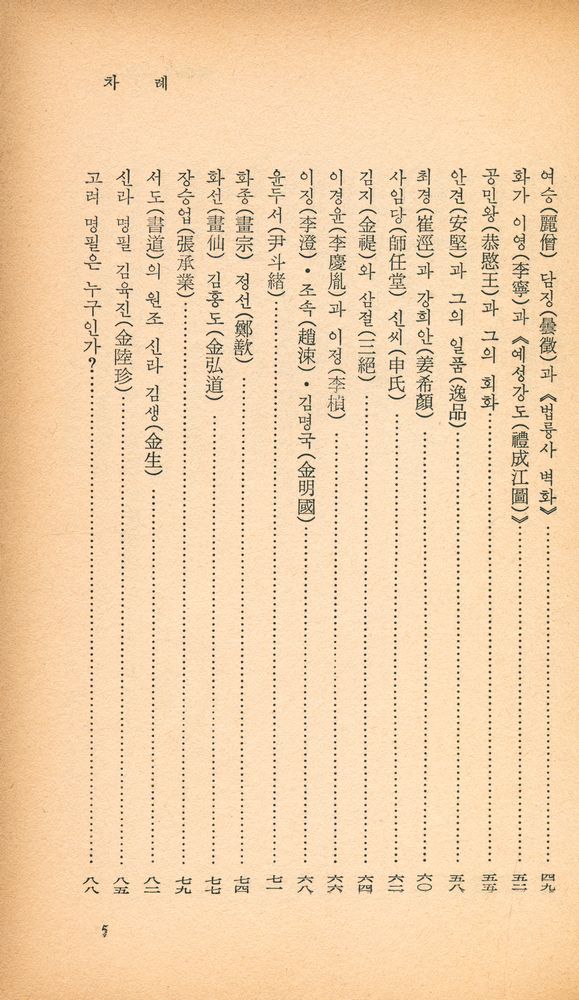 차 례
여승(麗僧) 담징(曇徵)과 《법륭사 벽화》……四九
화가 이영(李寧)과 《예성강도(禮成江圖)》……五二
공민왕(恭愍王)과 그의 회화……五五
안견(安堅)과 그의 일품(逸品)……五八
최경(崔涇)과 강희안(姜希顏)……六〇
사임당(師任堂) 신씨(申氏)……六二
김지(金禔)와 삼절(三絕)……六四
이경윤(李慶胤)과 이정(李楨)……六六
이징(李澄)·조속(趙涑)·김명국(金明國)……六八
윤두서(尹斗緖)……七一
화종(畫宗) 정선(鄭歚)……七四
화선(畫仙) 김홍도(金弘道)……七七
장승업(張承業)……七九
서도(書道)의 원조 신라 김생(金生)……八二
신라 명필 김육진(金陸珍)……八五
고려 명필은 누구인가?……八八
5